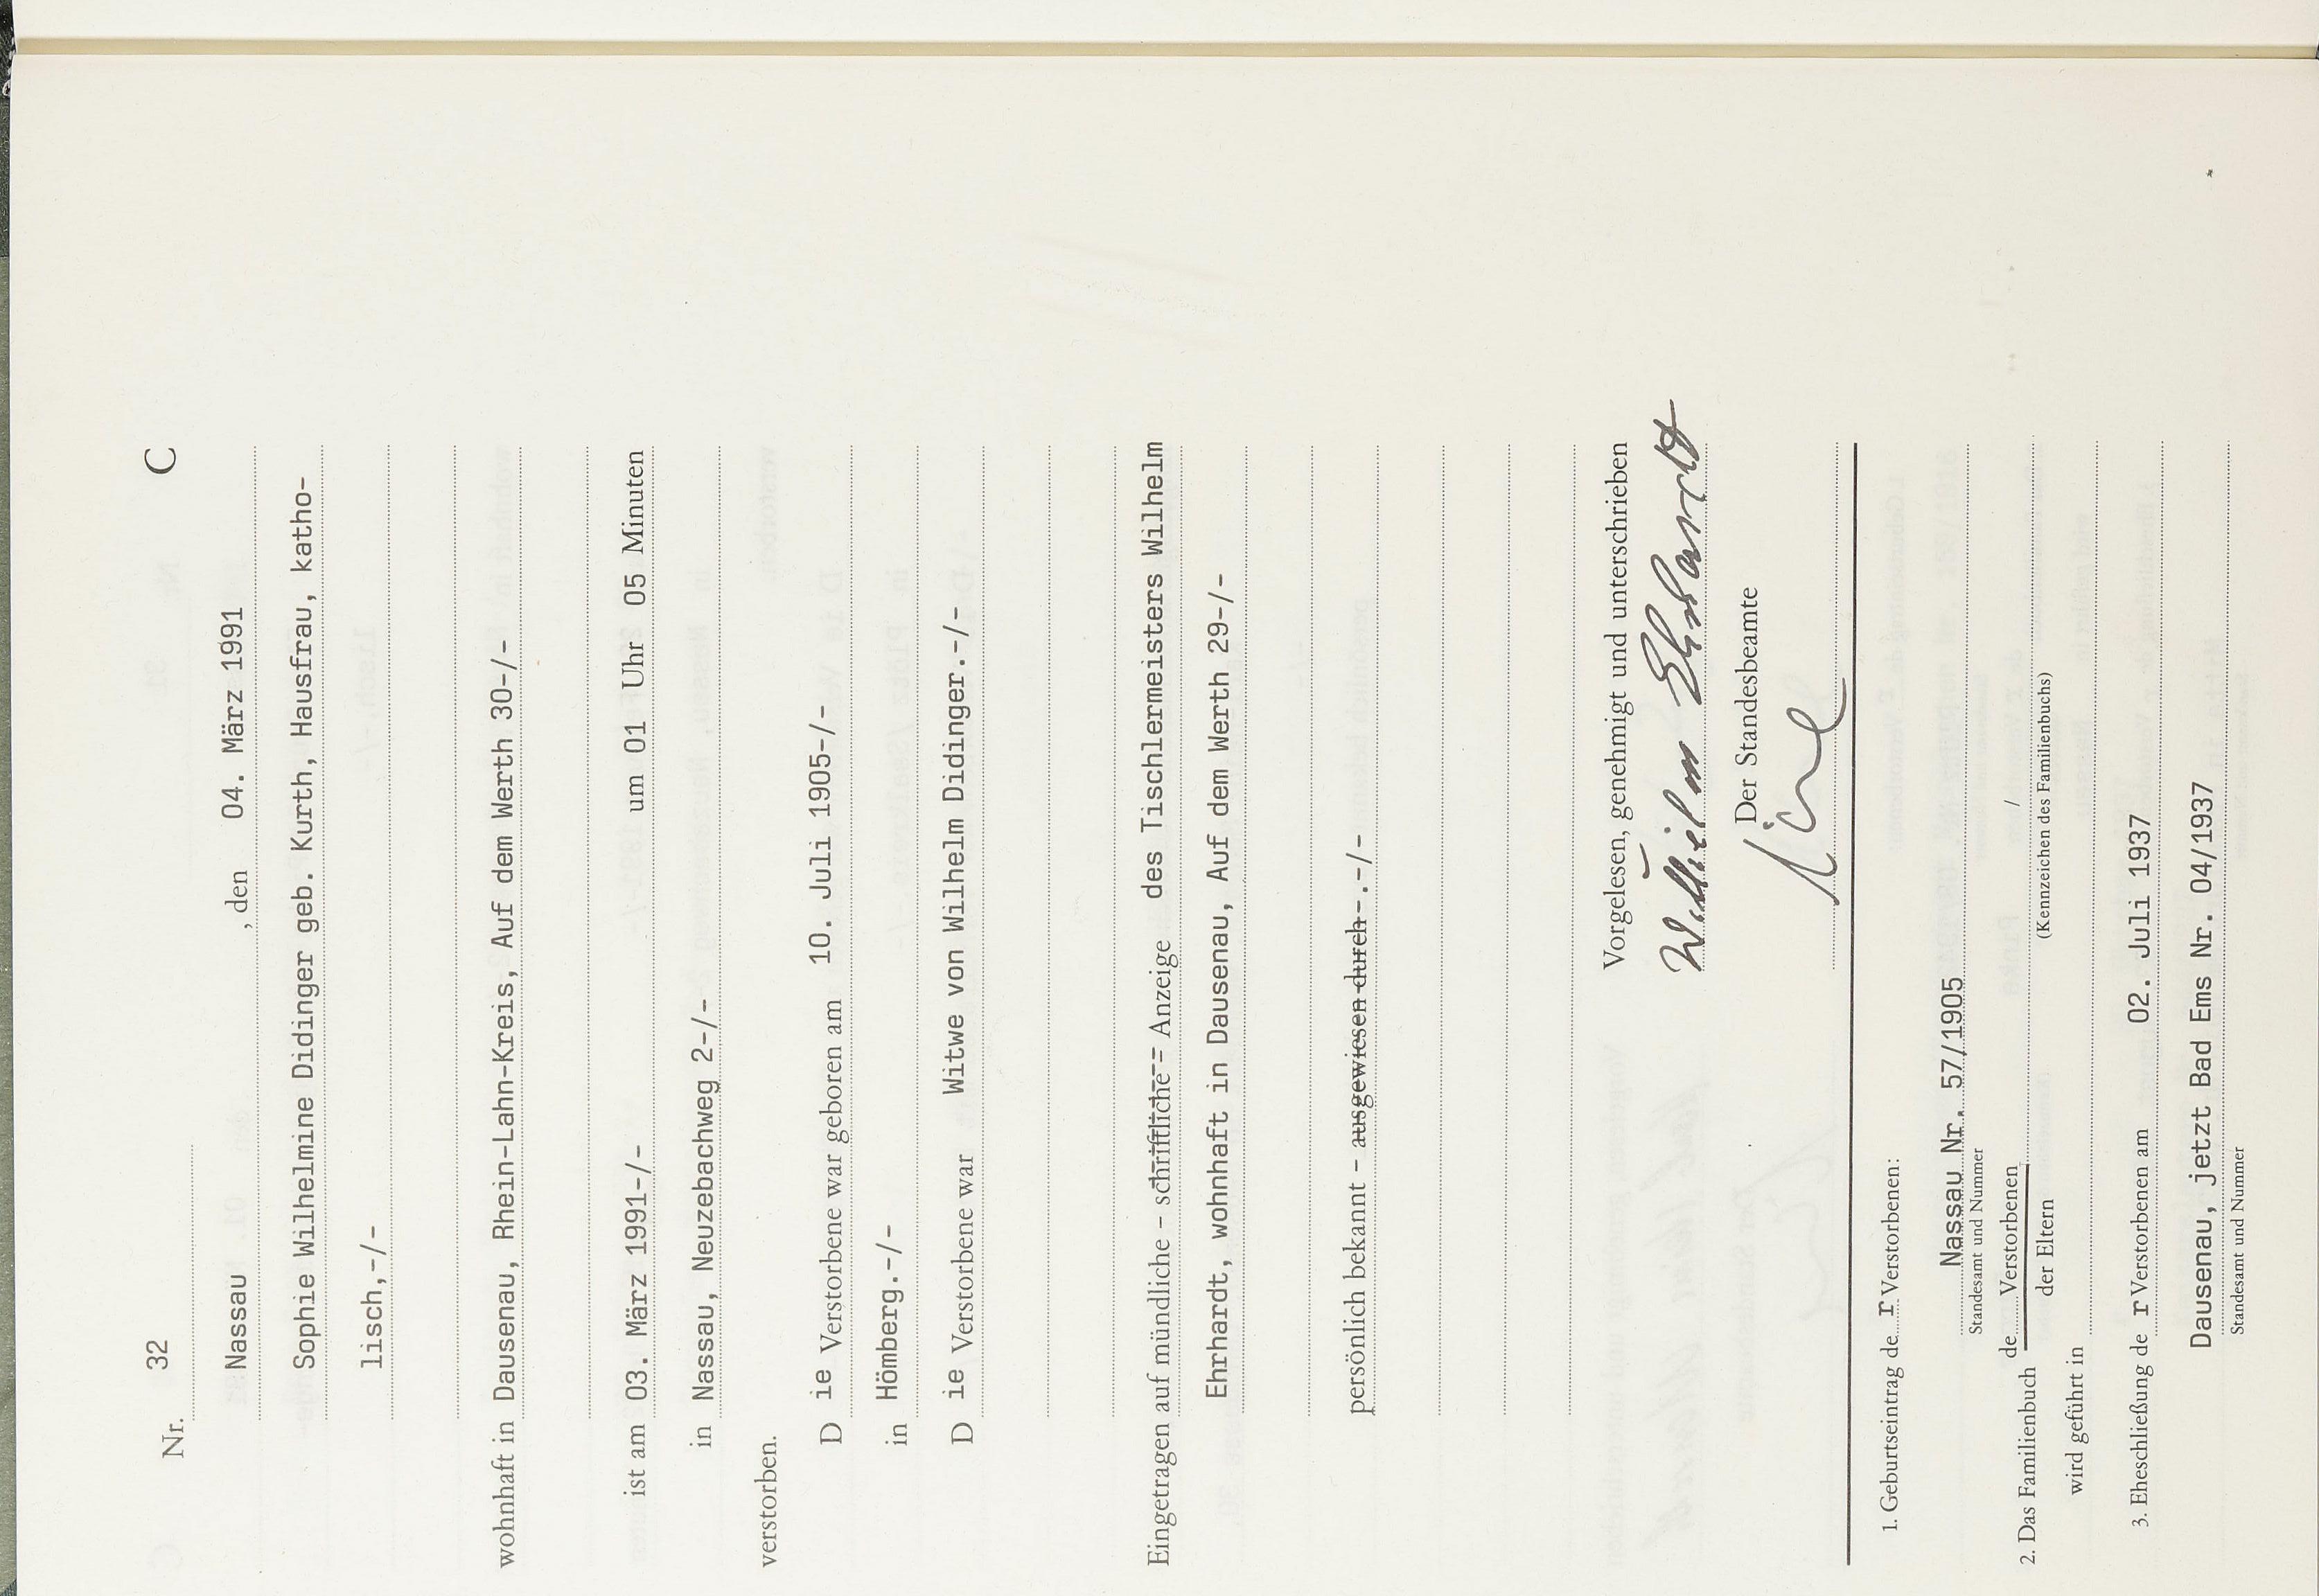 Nr. 32 C
Nassau , den 04. März 1991
Sophie Wilhelmine Didinger geb. Kurth, Hausfrau, katho-
lisch,-/-
wohnhaft in Dausenau, Rhein-Lahn-Kreis, Auf dem Werth 30-/-
ist am 03. März 1991-/- um 01 Uhr 05 Minuten
in Nassau, Neuzebachweg 2-/-
verstorben.
D ie Verstorbene war geboren am 10. Juli 1905-/-
in Hömberg.-/-
D ie Verstorbene war Witwe von Wilhelm Didinger.-/-
Eingetragen auf mündliche - schriftliche - Anzeige des Tischlermeisters Wilhelm
Ehrhardt, wohnhaft in Dausenau, Auf dem Werth 29-/-
persönlich bekannt - ausgewiesen durch -.-/-
Vorgelesen, genehmigt und unterschrieben
Wilhelm Ehrhardt
Der Standesbeamte
1. Geburtseintrag de r Verstorbenen:
Nassau Nr. 57/1905
Standesamt und Nummer
2. Das Familienbuch de Verstorbenen /
der Eltern (Kennzeichen des Familienbuchs)
wird geführt in
3. Eheschließung de r Verstorbenen am 02. Juli 1937
Dausenau, jetzt Bad Ems Nr. 04/1937
Standesamt und Nummer